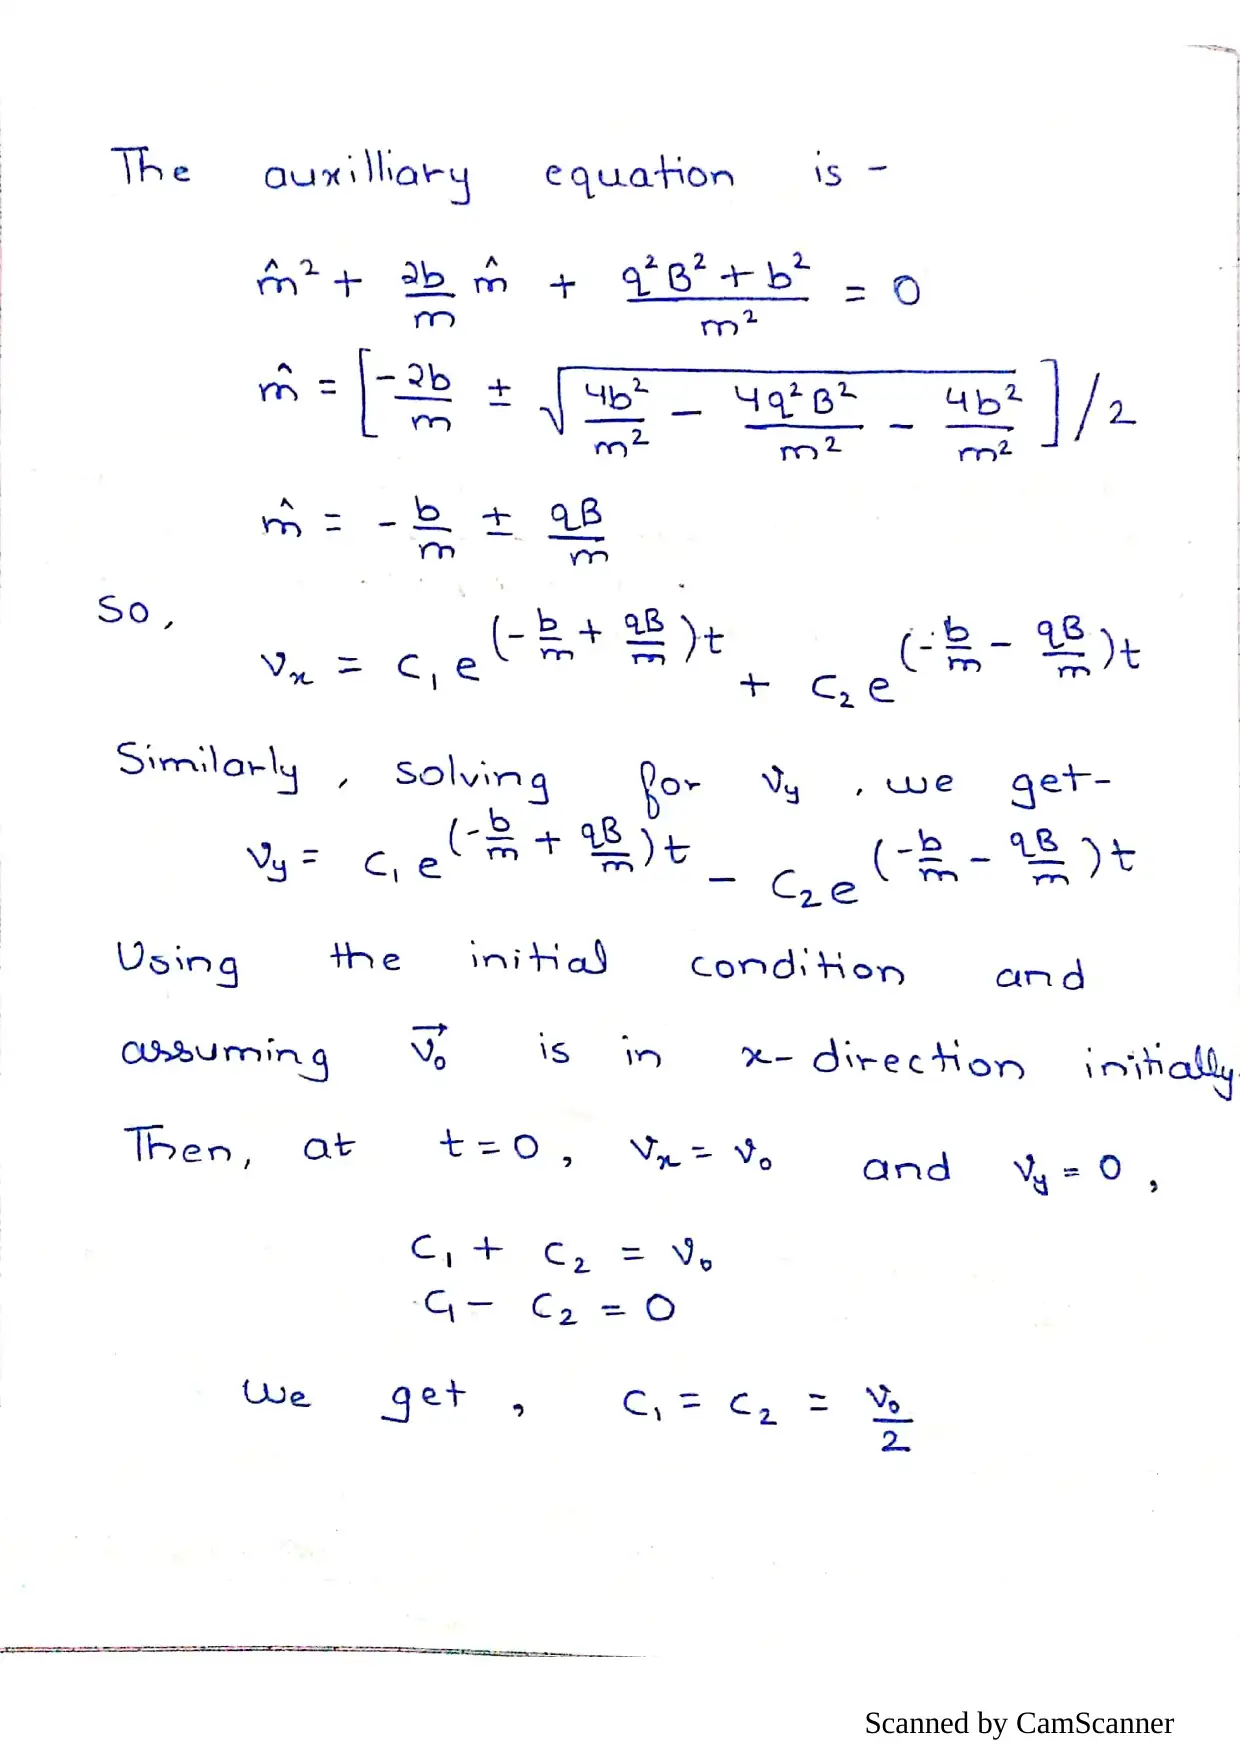 The auxilliary equation is -
m̂² + 2b/m m̂ + (q²B² + b²)/m² = 0
m̂ = [ -2b/m ± √(4b²/m² - 4q²B²/m² - 4b²/m²) ]/2
m̂ = - b/m ± qB/m
So,
vₓ = c₁ e^(-b/m + qB/m)t + c₂ e^(-b/m - qB/m)t
Similarly, solving for v_y, we get-
v_y = c₁ e^(-b/m + qB/m)t - c₂ e^(-b/m - qB/m)t
Using the initial condition and
assuming v⃗₀ is in x-direction initially.
Then, at t = 0, vₓ = v₀ and v_y = 0,
c₁ + c₂ = v₀
c₁ - c₂ = 0
We get, c₁ = c₂ = v₀/2
Scanned by CamScanner